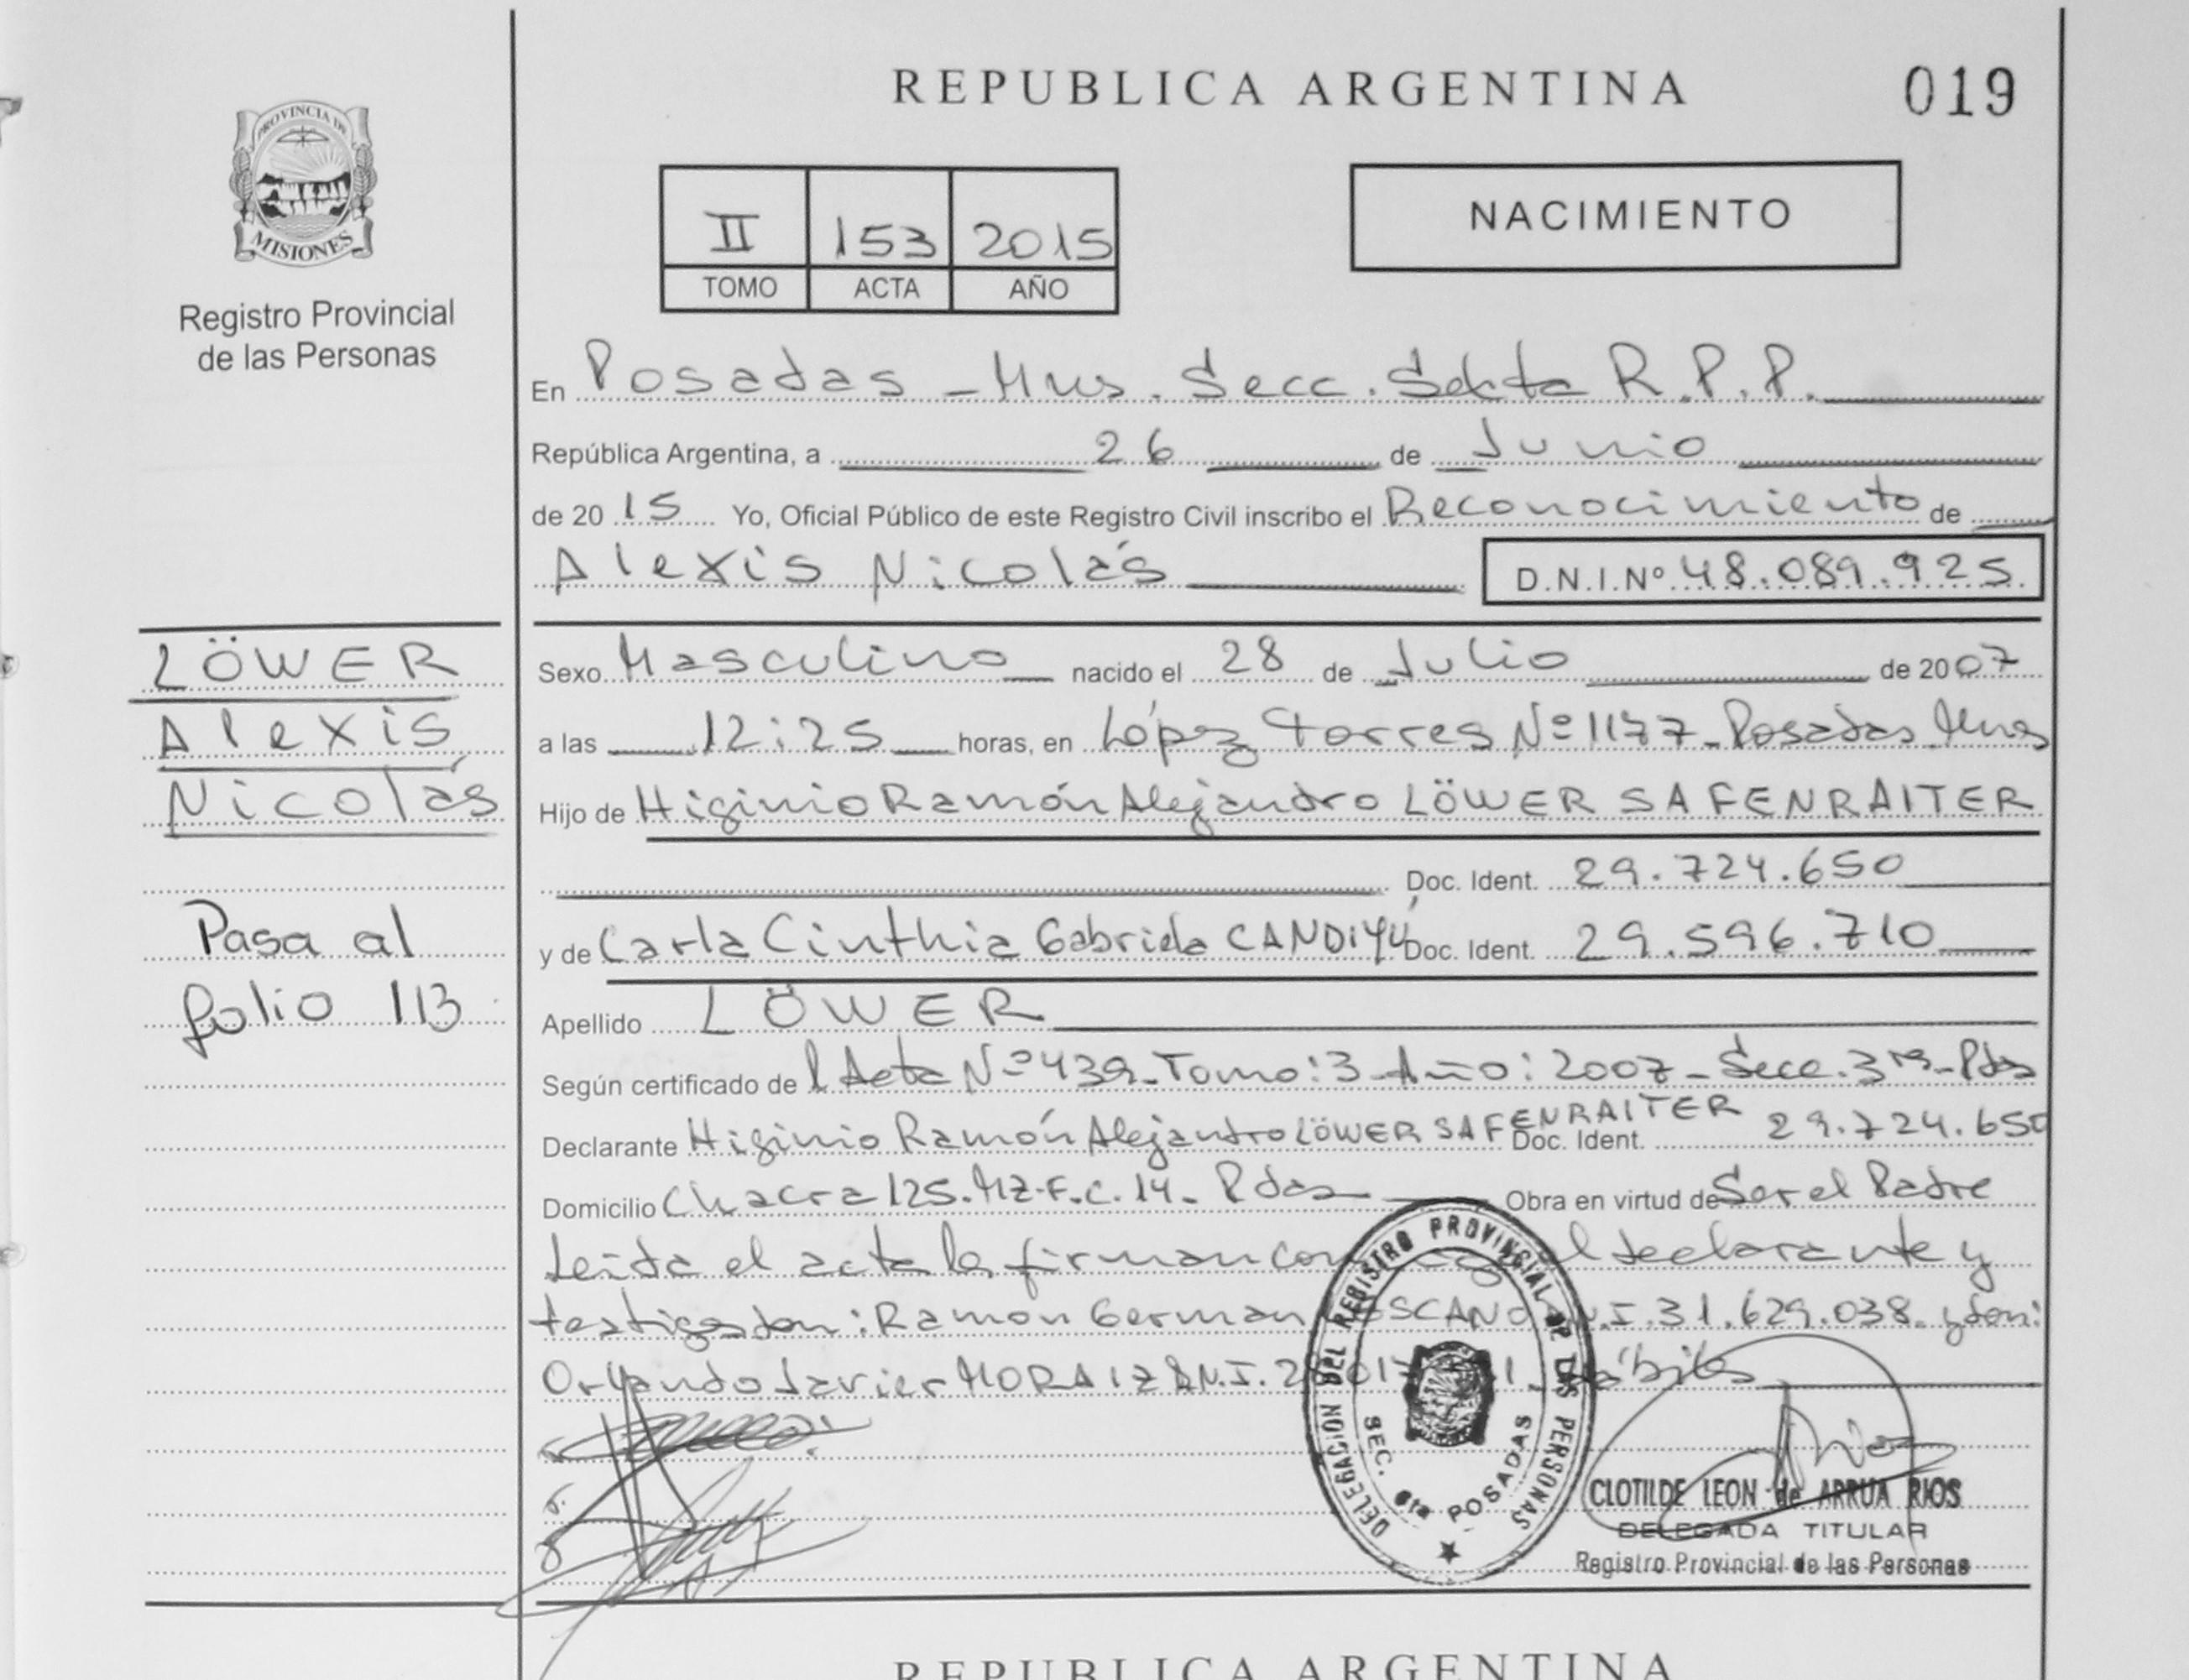 REPUBLICA ARGENTINA
019
PROVINCIA DE
MISIONES
Registro Provincial
de las Personas
II 153 2015
TOMO ACTA AÑO
NACIMIENTO
En Posadas - Mnes. Secc. Sexta R.P.P.
República Argentina, a 26 de Junio
de 2015 Yo, Oficial Público de este Registro Civil inscribo el Reconocimiento de
Alexis Nicolás D.N.I.Nº 48.089.925
LÖWER
Alexis
Nicolás
Pasa al
folio 113
Sexo Masculino nacido el 28 de Julio de 2007
a las 12:25 horas, en López Torres Nº 1177 - Posadas Mnes
Hijo de Higinio Ramón Alejandro LÖWER SAFENRAITER
Doc. Ident. 29.724.650
y de Carla Cinthia Gabriela CANDIYÚ Doc. Ident. 29.596.710
Apellido LÖWER
Según certificado de l Acta Nº 439 - Tomo: 3 - Año: 2007 - Secc. 3ra - Pdas
Declarante Higinio Ramón Alejandro LÖWER SAFENRAITER Doc. Ident. 29.724.650
Domicilio Chacra 125. MZ.F.C. 14 - Pdas Obra en virtud de Ser el Padre
Leida el acta la firman el declarante y
testigos don: Ramon German N.I. 31.629.038 y don:
Orlando Javier MORAIZ D.N.I. hábiles
DELEGACION DEL REGISTRO PROVINCIAL DE LAS PERSONAS
SEC. 6ta POSADAS
CLOTILDE LEON de ARRUA RIOS
DELEGADA TITULAR
Registro Provincial de las Personas
REPUBLICA ARGENTINA